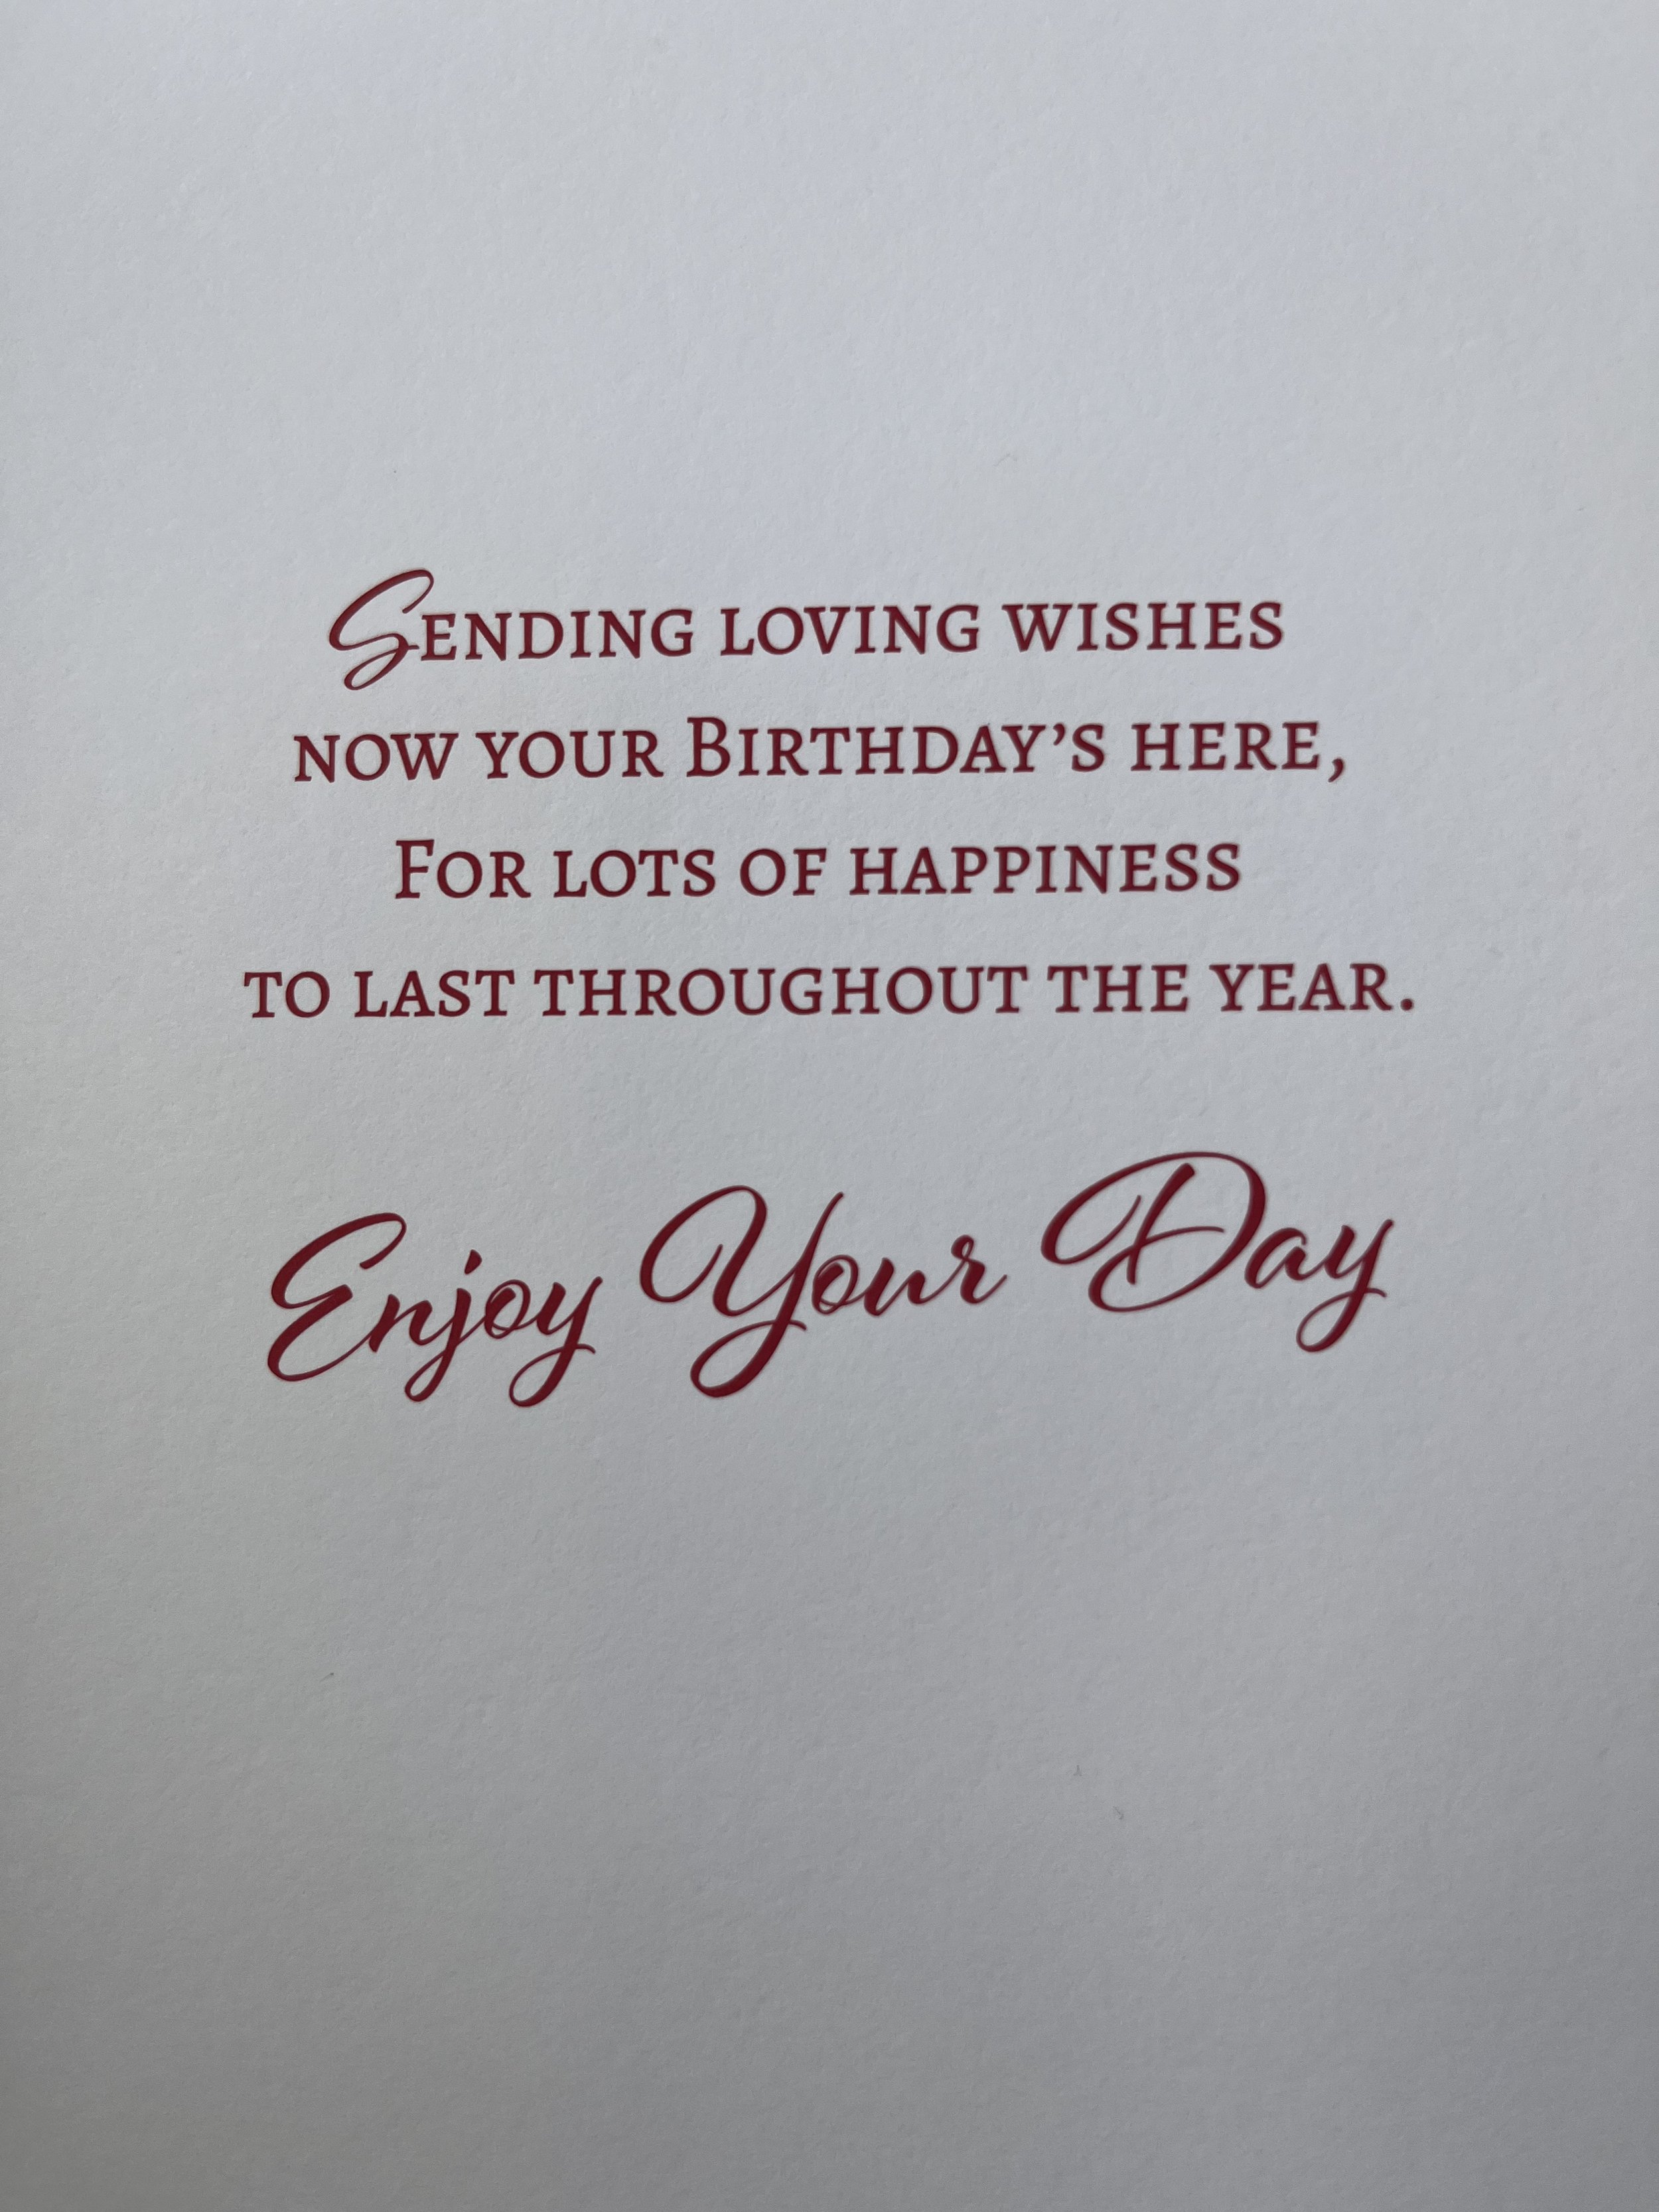 Sending loving wishes
now your Birthday's here,
For lots of happiness
to last throughout the year.
Enjoy Your Day